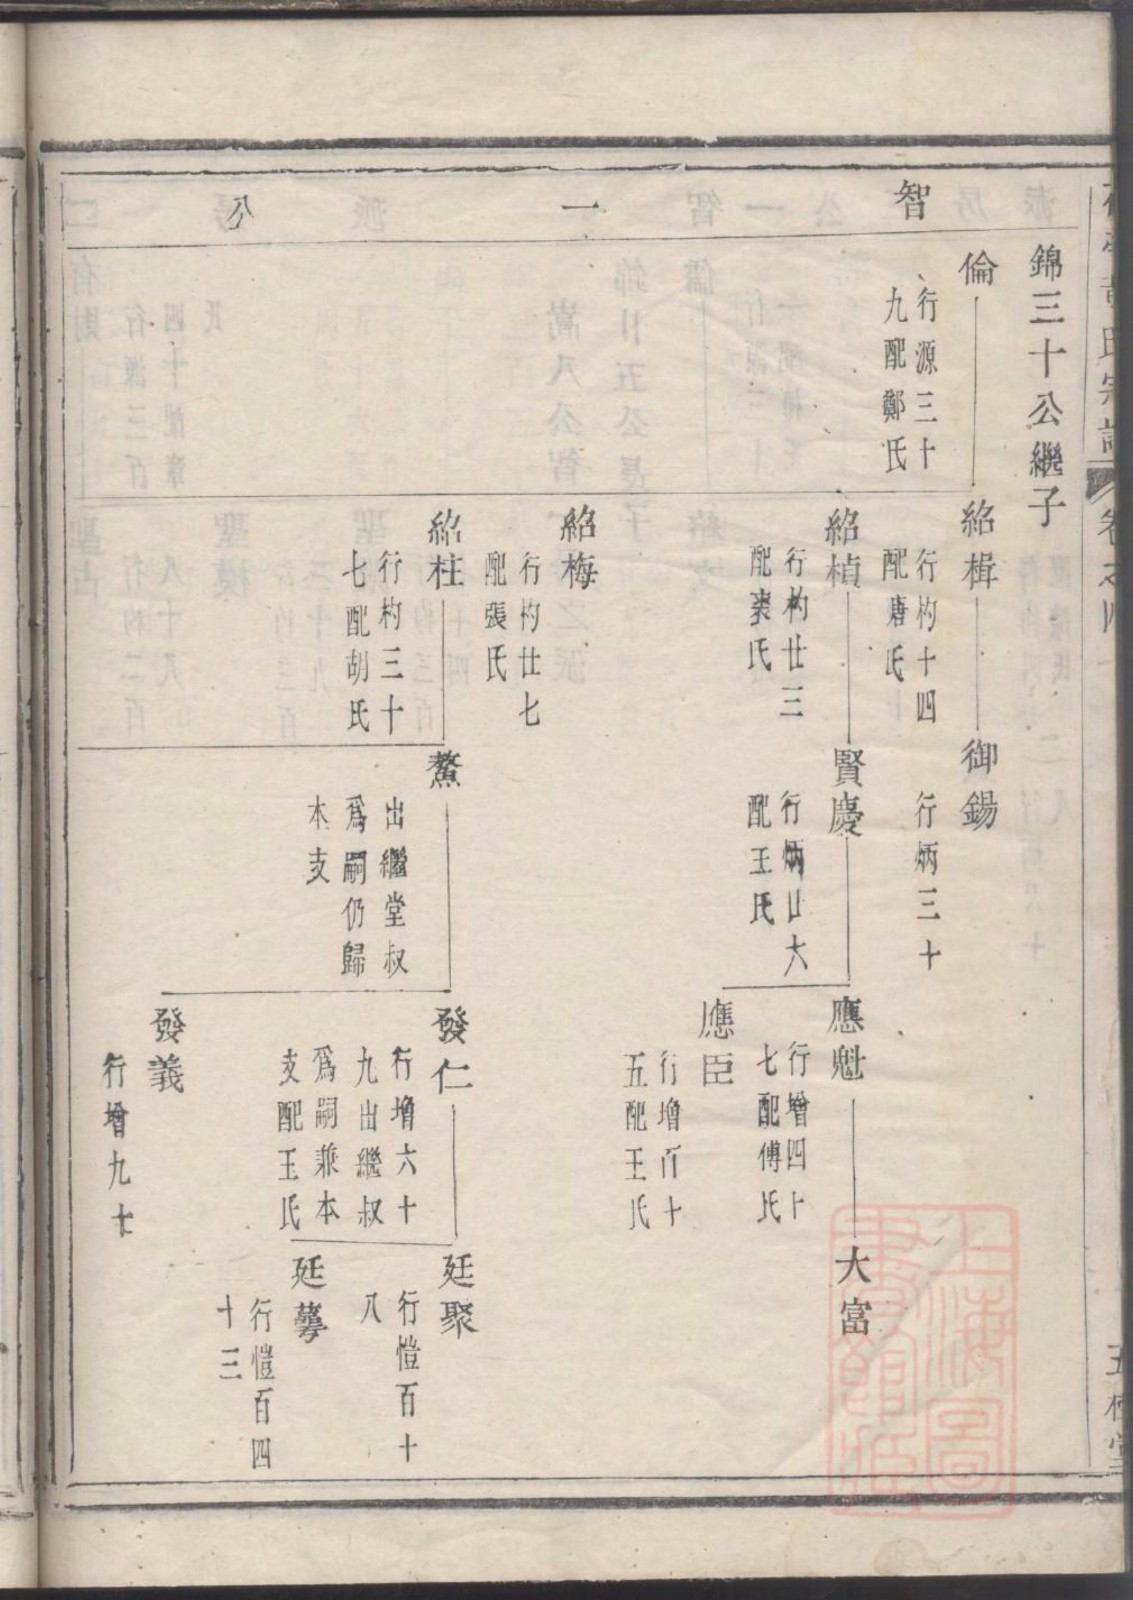 智一公
錦三十公繼子
倫
行源三十
九配鄭氏
紹楫
行杓十四
配唐氏
御錫
行炳三十
紹楨
行杓廿三
配裘氏
賢慶
行炳廿六
配王氏
應魁
行增四十
七配傅氏
大富
應臣
行增百十
五配王氏
紹梅
行杓廿七
配張氏
紹柱
行杓三十
七配胡氏
鰲
出繼堂叔
爲嗣仍歸
本支
發仁
行增六十
九出繼叔
爲嗣兼本
支配王氏
廷聚
行愷百十
八
廷
行愷百四
十三
發義
行增九十
氏宗譜
卷之四
上海圖書館藏